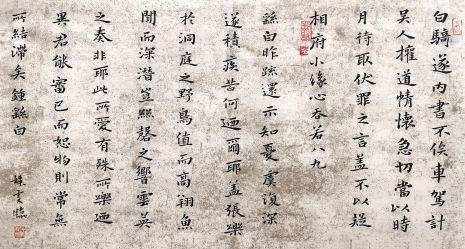 白騎遂內書不俟車駕計
吳人權道情懷急切當以時
月待取伏罪之言蓋不以疑
相府小緣心吞若八九
繇白昨疏還示知憂虞復深
遂積疾苦何迺爾耶蓋張樂
於洞庭之野鳥值而高翔魚
聞而深潛豈絲磬之響雲英
之奏非耶此所愛有殊所樂迺
異君能審己而恕物則常無
所結滯矣鍾繇白
臨